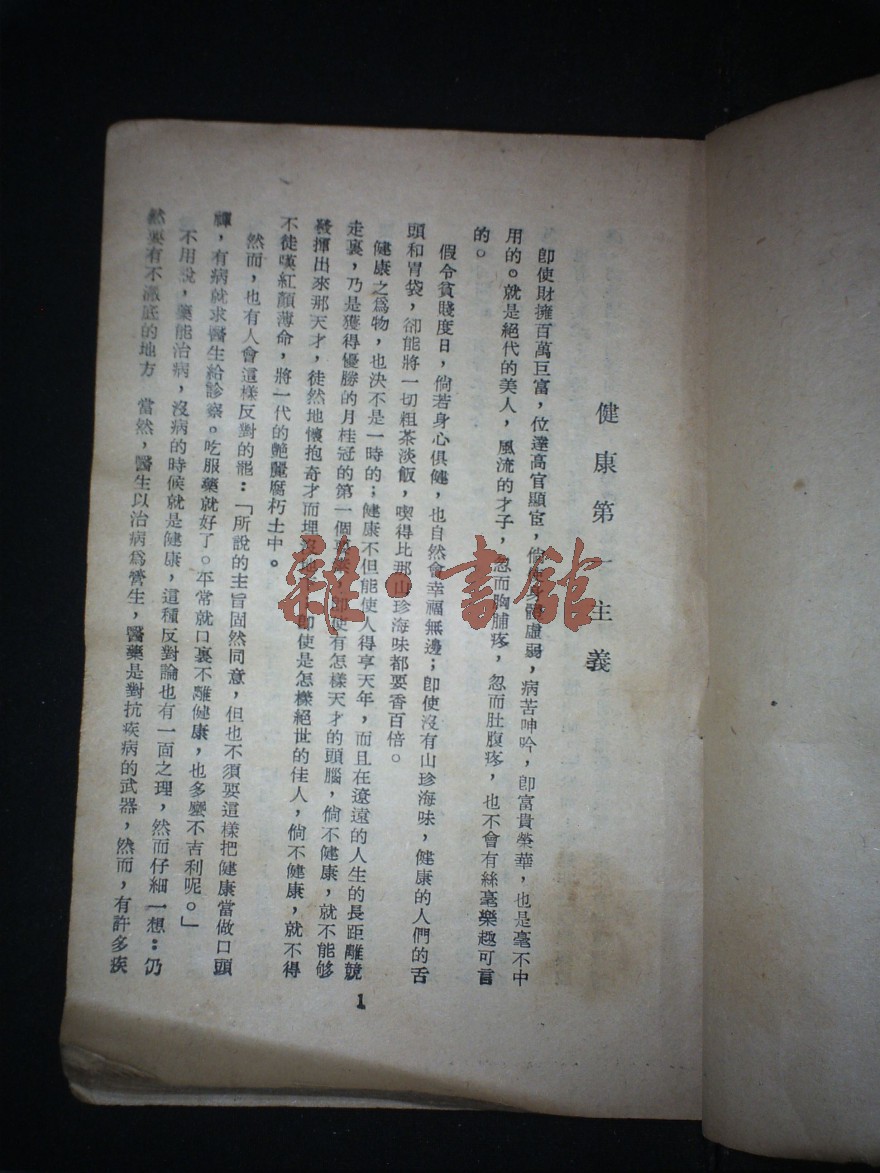 健康第一主義
即使財擁百萬巨富，位達高官顯宦，倘使身體虛弱，病苦呻吟，即富貴榮華，也是毫不中
用的。就是絕代的美人，風流的才子，忽而胸脯疼，忽而肚腹疼，也不會有絲毫樂趣可言
的。
假令貧賤度日，倘若身心俱健，也自然會幸福無邊；即使沒有山珍海味，健康的人們的舌
頭和胃袋，卻能將一切粗茶淡飯，喫得比那山珍海味都要香百倍。
健康之為物，也決不是一時的；健康不但能使人得享天年，而且在遼遠的人生的長距離競
走裏，乃是獲得優勝的月桂冠的第一個 即使有怎樣天才的頭腦，倘不健康，就不能够
發揮出來那天才，徒然地懷抱奇才而埋沒地 即使是怎樣絕世的佳人，倘不健康，就不得
不徒嘆紅顏薄命，將一代的艷麗腐朽土中。
然而，也有人會這樣反對的罷：「所說的主旨固然同意，但也不須要這樣把健康當做口頭
禪，有病就求醫生給診察。吃服藥就好了。平常就口裏不離健康，也多麼不吉利呢。」
不用說，藥能治病，沒病的時候就是健康，這種反對論也有一面之理，然而仔細一想：仍
然要有不澈底的地方 當然，醫生以治病為濟生，醫藥是對抗疾病的武器，然而，有許多疾
1
雜·書館